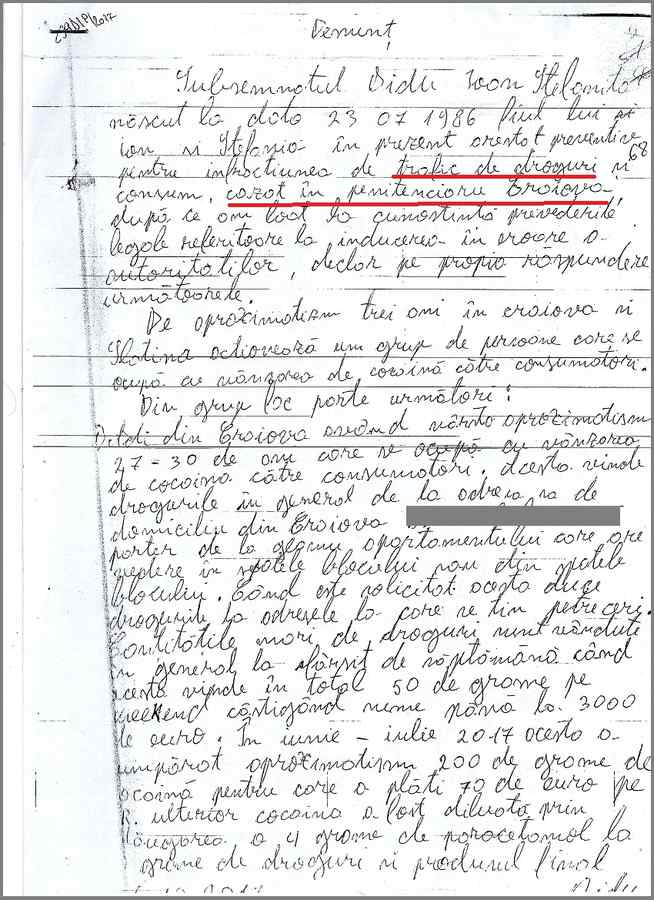 Denunț
Subsemnatul Didu Ioan Ștefanita
născut la data 23 07 1986 fiul lui
ion și Ștefania în prezent arestat preventiv
pentru infracțiunea de trafic de droguri și
68
consum, cazat în penitenciaru Craiova,
după ce am luat la cunostintă prevederile
legale referitoare la inducerea în eroare a
autorităților, declar pe propia raspundere
următoarele.
De aproximativ trei ani în craiova si
Slatina actiovează un grup de persoane care se
ocupă cu vânzarea de cocaină către consumatori.
Din grup fac parte următori:
din Craiova avand vârsta aproximativ
27-30 de ani care se ocupă cu vânzarea
de cocaina către consumatori. Acesta vinde
drogurile în general de la adresa sa de
domiciliu din Craiova
parter de la geamu apartamentului care are
vedere în spatele blocului sau din spatele
blocului. Când este solicitat acesta duce
drogurile la adresele la care se tin petreceri.
Cantitățile mari de droguri sunt vândute
în general la sfârșit de săptămână când
acesta vinde în total 50 de grame pe
weekend câstigând sume până la 3000
de euro. În iunie - iulie 2017 acesta a
cumpărat aproximativ 200 de grame de
cocaină pentru care a plăti 70 de euro pe
g. ulterior cocaina a fost diluată prin
adăugarea a 4 grame de paracetamol la
grame de droguri si produsul final
Didu